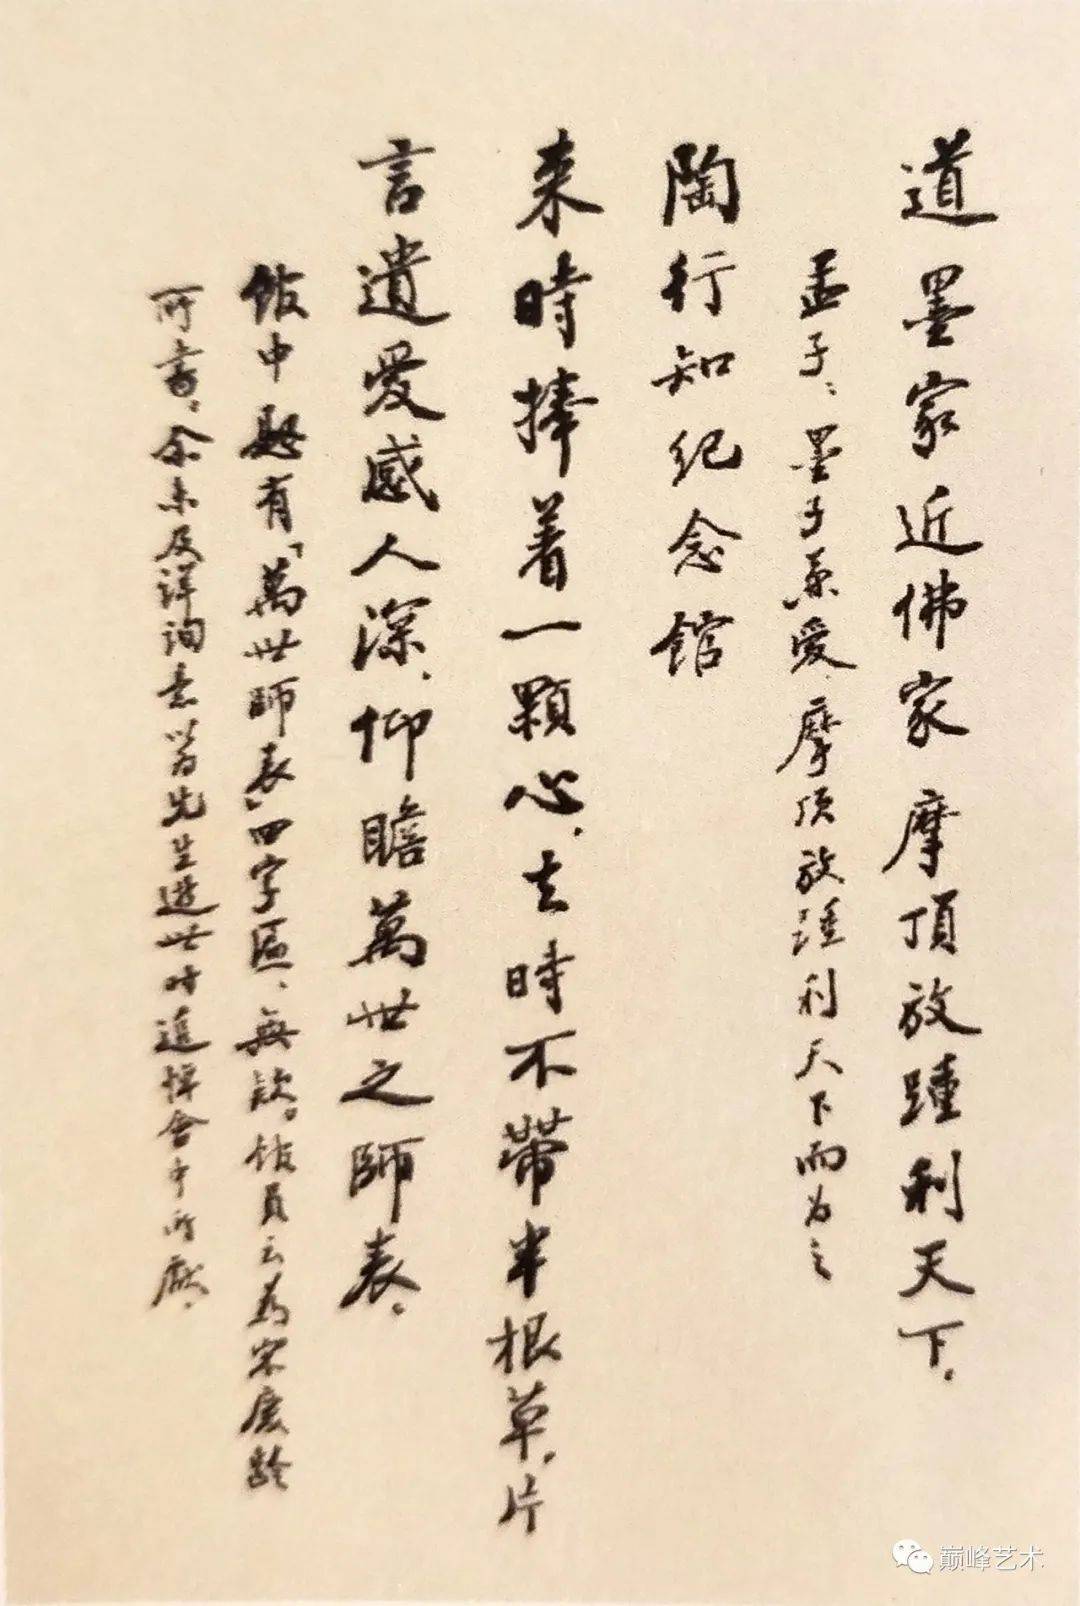 道墨家近佛家摩頂放踵利天下。
孟子：墨子兼爱，摩顶放踵利天下而为之
陶行知纪念館
来時捧着一顆心，去時不帶半根草。片
言遺愛感人深，仰瞻萬世之師表。
館中懸有「萬世師表」四字匾，無款。館員云為宋慶齡
所書。余未及詳询
先生逝世时追悼会中所献。
巅峰艺术